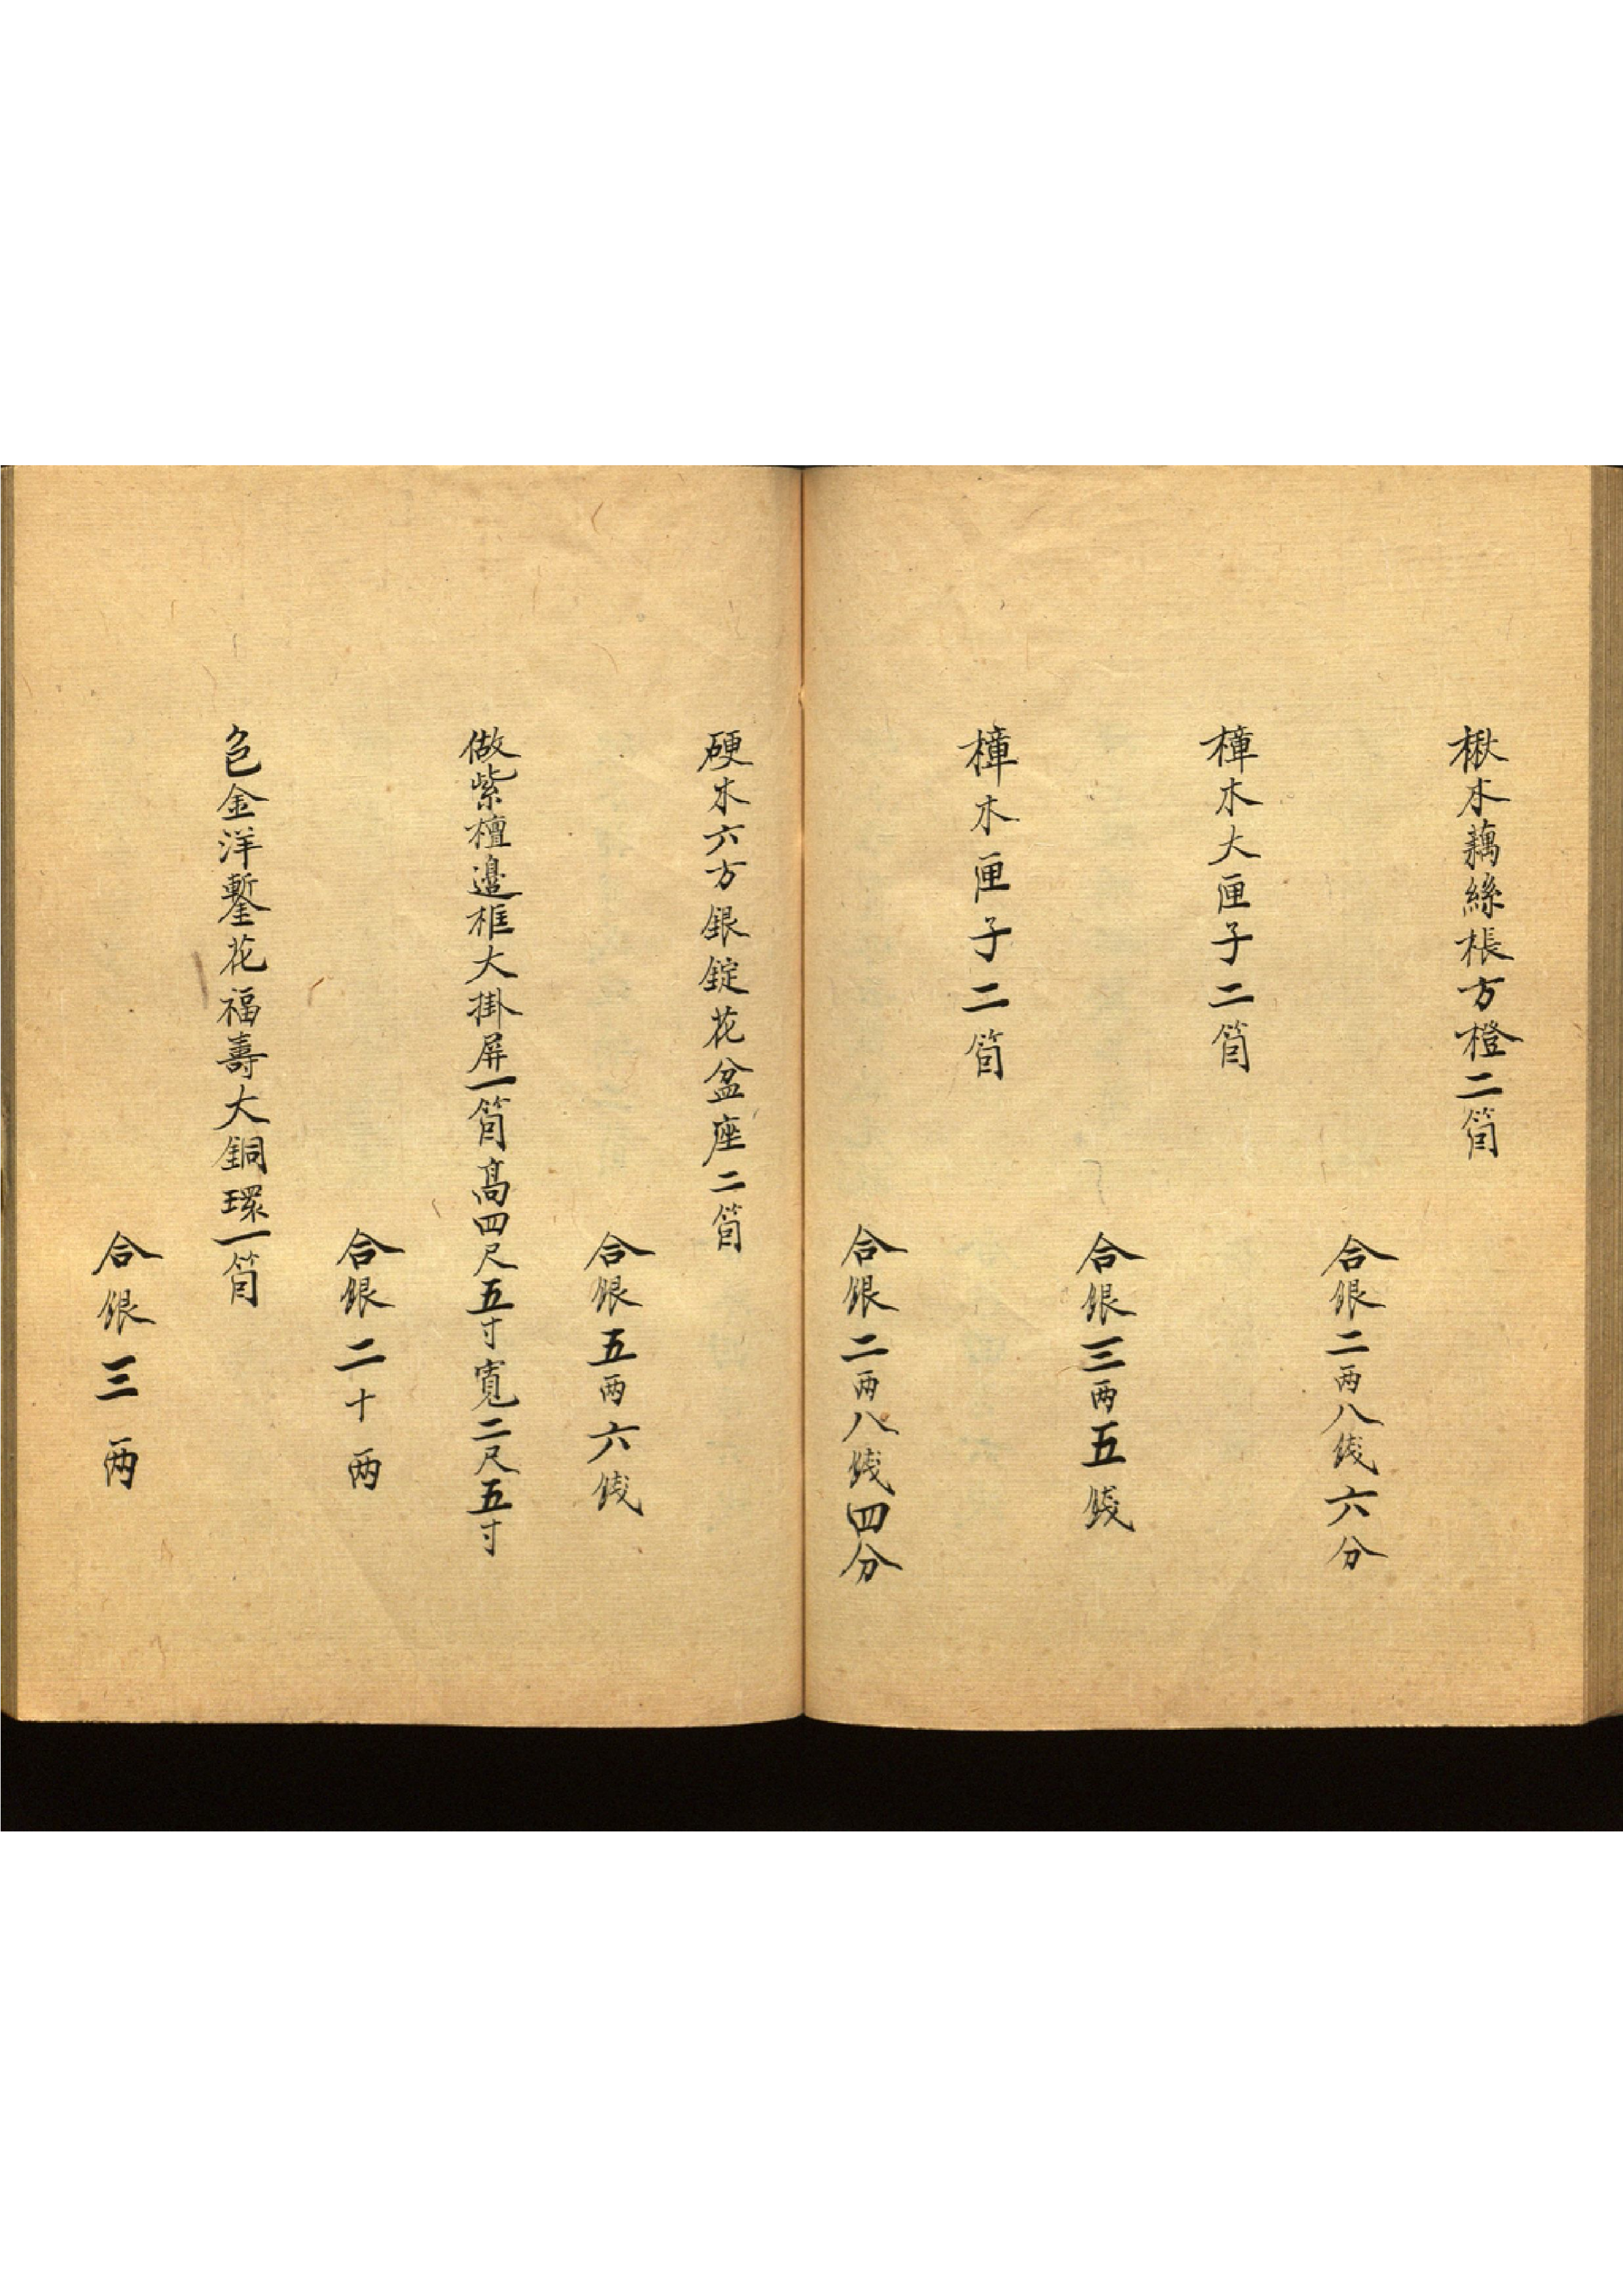 楸木藕絲棖方橙二箇
合銀二兩八錢六分
樟木大匣子二箇
合銀三兩五錢
樟木匣子二箇
合銀二兩八錢四分
硬木六方銀錠花盆座二箇
合銀五兩六錢
做紫檀邊框大掛屏一箇高四尺五寸寬二尺五寸
合銀二十兩
色金洋鏨花福壽大銅環一箇
合銀三兩